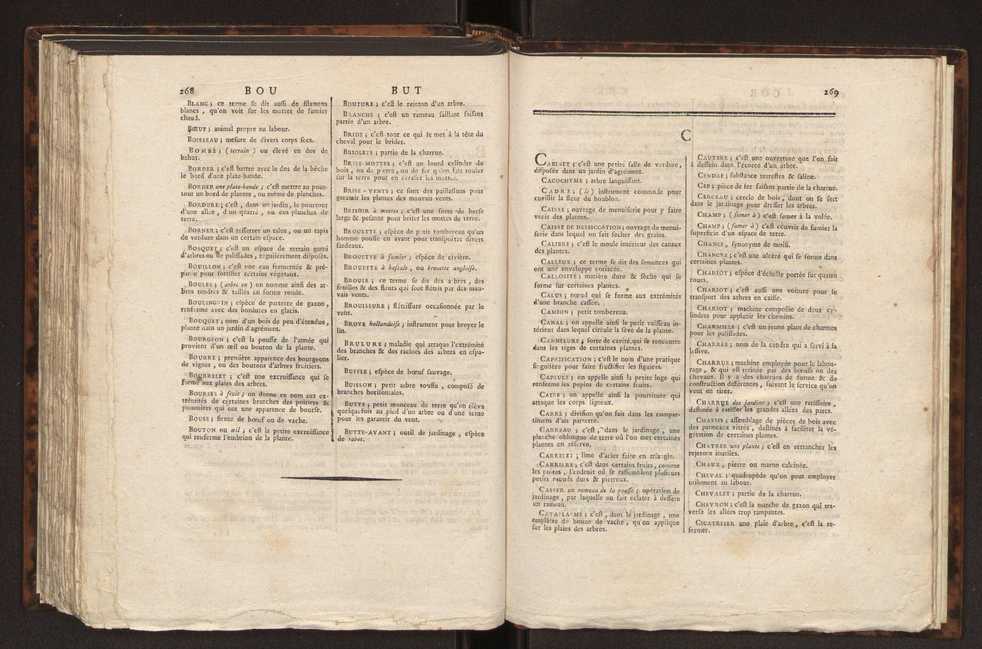 268 BOU
BUT
BLANC ; ce terme se dit aussi de filamens
blancs , qu'on voit sur les mottes de fumier
chaud.
BŒUF ; animal propre au labour.
BOISSEAU ; mesure de divers corps secs.
BOMBÉ ; ( terrain ) ou élevé en dos de
bahut.
BORDER ; c'est battre avec le dos de la bêche
le bord d'une plate-bande.
BORDER une plate-bande ; c'est mettre au pourtour
un bord de plantes , ou même de planches.
BORDURE ; c'est , dans un jardin , le pourtour
d'une allée , d'un quarré , ou des planches de
terre.
BORNER ; c'est resserrer un talus , ou un tapis
de verdure dans un certain espace.
BOSQUET ; c'est un espace de terrain garni
d'arbres ou de palissades , régulièrement disposés.
BOUILLON ; c'est une eau fermentée & préparée
pour fortifier certains végétaux.
BOULES ; ( arbre en ) on nomme ainsi des arbres
tondus & taillés en forme ronde.
BOULINGRIN ; espèce de parterre de gazon ,
renfermé avec des bordures en glacis.
BOUQUET ; nom d'un bois de peu d'étendue ,
planté dans un jardin d'agrément.
BOURGEON ; c'est la pousse de l'année qui
provient d'un œil ou bouton de la plante.
BOURRE ; première apparence des bourgeons
de vignes , ou des boutons d'arbres fruitiers.
BOURRELET ; c'est une excroissance qui se
forme aux plaies des arbres.
BOURSES à fruit ; on donne ce nom aux extrémités
de certaines branches des poiriers &
pommiers qui ont une apparence de bourse.
BOUSE ; fiente de bœuf ou de vache.
BOUTON ou œil ; c'est la petite excroissance
qui renferme l'embrion de la plante.
BOUTURE ; c'est le rejetton d'un arbre.
BRANCHE ; c'est un rameau saillant faisant
partie d'un arbre.
BRIDE ; c'est tout ce qui se met à la tête du
cheval pour le brider.
BRIOLETS ; partie de la charrue.
BRISE-MOTTES ; c'est un lourd cylindre de
bois , ou de pierre , ou de fer qu'on fait rouler
sur la terre pour en écraser les mottes.
BRISE-VENTS ; ce sont des paillassons pour
garantir les plantes des mauvais vents.
BRISOIR à mottes ; c'est une sorte de herse
large & pesante pour briser les mottes de terre.
BROUETTE ; espèce de petit tombereau qu'un
homme pousse en avant pour transporter divers
fardeaux.
BROUETTE à fumier ; espèce de civière.
BROUETTE à bascule , ou brouette angloise.
BROUIS ; ce terme se dit des arbres , des
feuilles & des fleurs qui sont flétris par des mauvais
vents.
BROUISSURE ; flétrissure occasionnée par le
vent.
BROYE hollandoise ; instrument pour broyer le
lin.
BRULURE ; maladie qui attaque l'extrémité
des branches & des racines des arbres en espalier.
BUFFLE ; espèce de bœuf sauvage.
BUISSON ; petit arbre touffu , composé de
branches horizontales.
BUTTE ; petit monceau de terre qu'on élève
quelquefois au pied d'un arbre ou d'une tente
pour les garantir du vent.
BUTTE-AVANT ; outil de jardinage , espèce
de rabot.
269
C
CABINET ; c'est une petite salle de verdure ,
disposée dans un jardin d'agrément.
CACOCHYME ; arbre languissant.
CADRE ; ( le ) instrument commode pour
cueillir la fleur du houblon.
CAISSE ; ouvrage de menuiserie pour y faire
venir des plantes.
CAISSE DE DESSICCATION ; ouvrage de menuiserie
dans lequel on fait sécher des grains.
CALIBRE ; c'est le moule intérieur des canaux
des plantes.
CALLEUX ; ce terme se dit des semences qui
ont une enveloppe coriacée.
CALLOSITÉ ; matière dure & sèche qui se
forme sur certaines plantes.
CALUS ; nœud qui se forme aux extrémités
d'une branche cassée.
CAMION ; petit tombereau.
CANAL ; on appelle ainsi le petit vaisseau intérieur
dans lequel circule la sève de la plante.
CANNELURE ; sorte de cavité qui se rencontre
dans les tiges de certaines plantes.
CAPRIFICATION ; c'est le nom d'une pratique
singulière pour faire fructifier les figuiers.
CAPSULE ; on appelle ainsi la petite loge qui
renferme les pepins de certains fruits.
CARIE ; on appelle ainsi la pourriture qui
attaque les corps ligneux.
CARRÉ ; division qu'on fait dans les compartimens
d'un parterre.
CARREAU ; c'est , dans le jardinage , une
planche oblongue de terre où l'on met certaines
plantes en réserve.
CARRELET ; lime d'acier faite en triangle.
CARRIERE ; c'est dans certains fruits , comme
les poires , l'endroit où se rassemblent plusieurs
petits nœuds durs & pierreux.
CASSER un rameau de la pousse ; opération de
jardinage , par laquelle on fait éclater à dessein
un rameau.
CATAPLASME ; c'est , dans le jardinage , une
emplâtre de bouze de vache , qu'on applique
sur les plaies des arbres.
CAUTERE ; c'est une ouverture que l'on fait
à dessein dans l'écorce d'un arbre.
CENDRE ; substance terrestre & saline.
CEP ; pièce de fer faisant partie de la charrue.
CERCEAU ; cercle de bois , dont on se sert
dans le jardinage pour dresser les arbres.
CHAMP ; ( semer à ) c'est semer à la volée.
CHAMP ; ( fumer à ) c'est couvrir de fumier la
superficie d'un espace de terre.
CHANCI , synonyme de moisi.
CHANCRE ; c'est une ulcère qui se forme dans
certaines plantes.
CHARIOT ; espèce d'échelle portée sur quatre
roues.
CHARIOT ; c'est aussi une voiture pour le
transport des arbres en caisse.
CHARIOT ; machine composée de deux cylindres
pour applatir les chemins.
CHARMILLE ; c'est un jeune plant de charmes
pour les palissades.
CHARRÉE ; nom de la cendre qui a servi à la
lessive.
CHARRUE ; machine employée pour le labourage ,
& qui est traînée par des bœufs ou des
chevaux. Il y a des charrues de forme & de
construction différentes , suivant le service qu'on
veut en tirer.
CHARRUE des jardins ; c'est une ratissoire ,
destinée à ratisser les grandes allées des parcs.
CHASSIS ; assemblage de pièces de bois avec
des panneaux vitrés , destinés à faciliter la végétation
de certaines plantes.
CHATRER une plante ; c'est en retrancher les
rejetons inutiles.
CHAUX , pierre ou marne calcinée.
CHEVAL ; quadrupède qu'on peut employer
utilement au labour.
CHEVALET ; partie de la charrue.
CHEVRON ; c'est la marche de gazon qui traverse
les allées trop rampantes.
CICATRISER une plaie d'arbre , c'est la refermer.